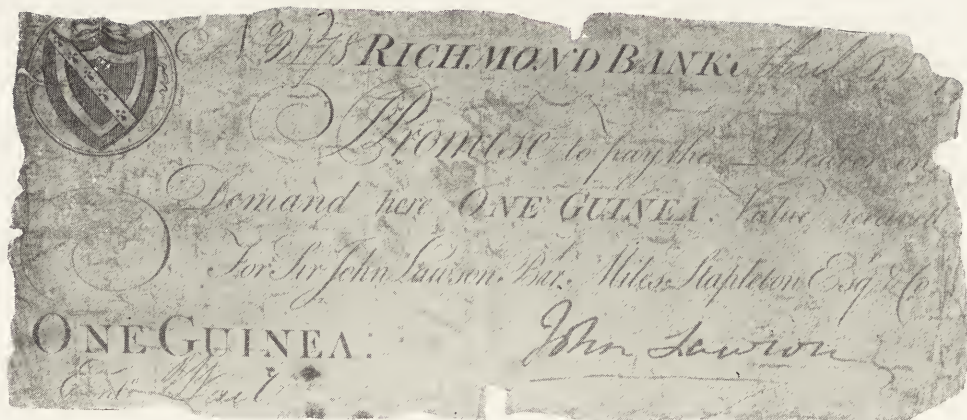 No. 9178 RICHMOND BANK, April
I Promise to pay the Bearer on
Demand here ONE GUINEA. Value received
For Sir John Lawson. Bar. Miles Stapleton Esq. & Co
ONE GUINEA:
John Lawson